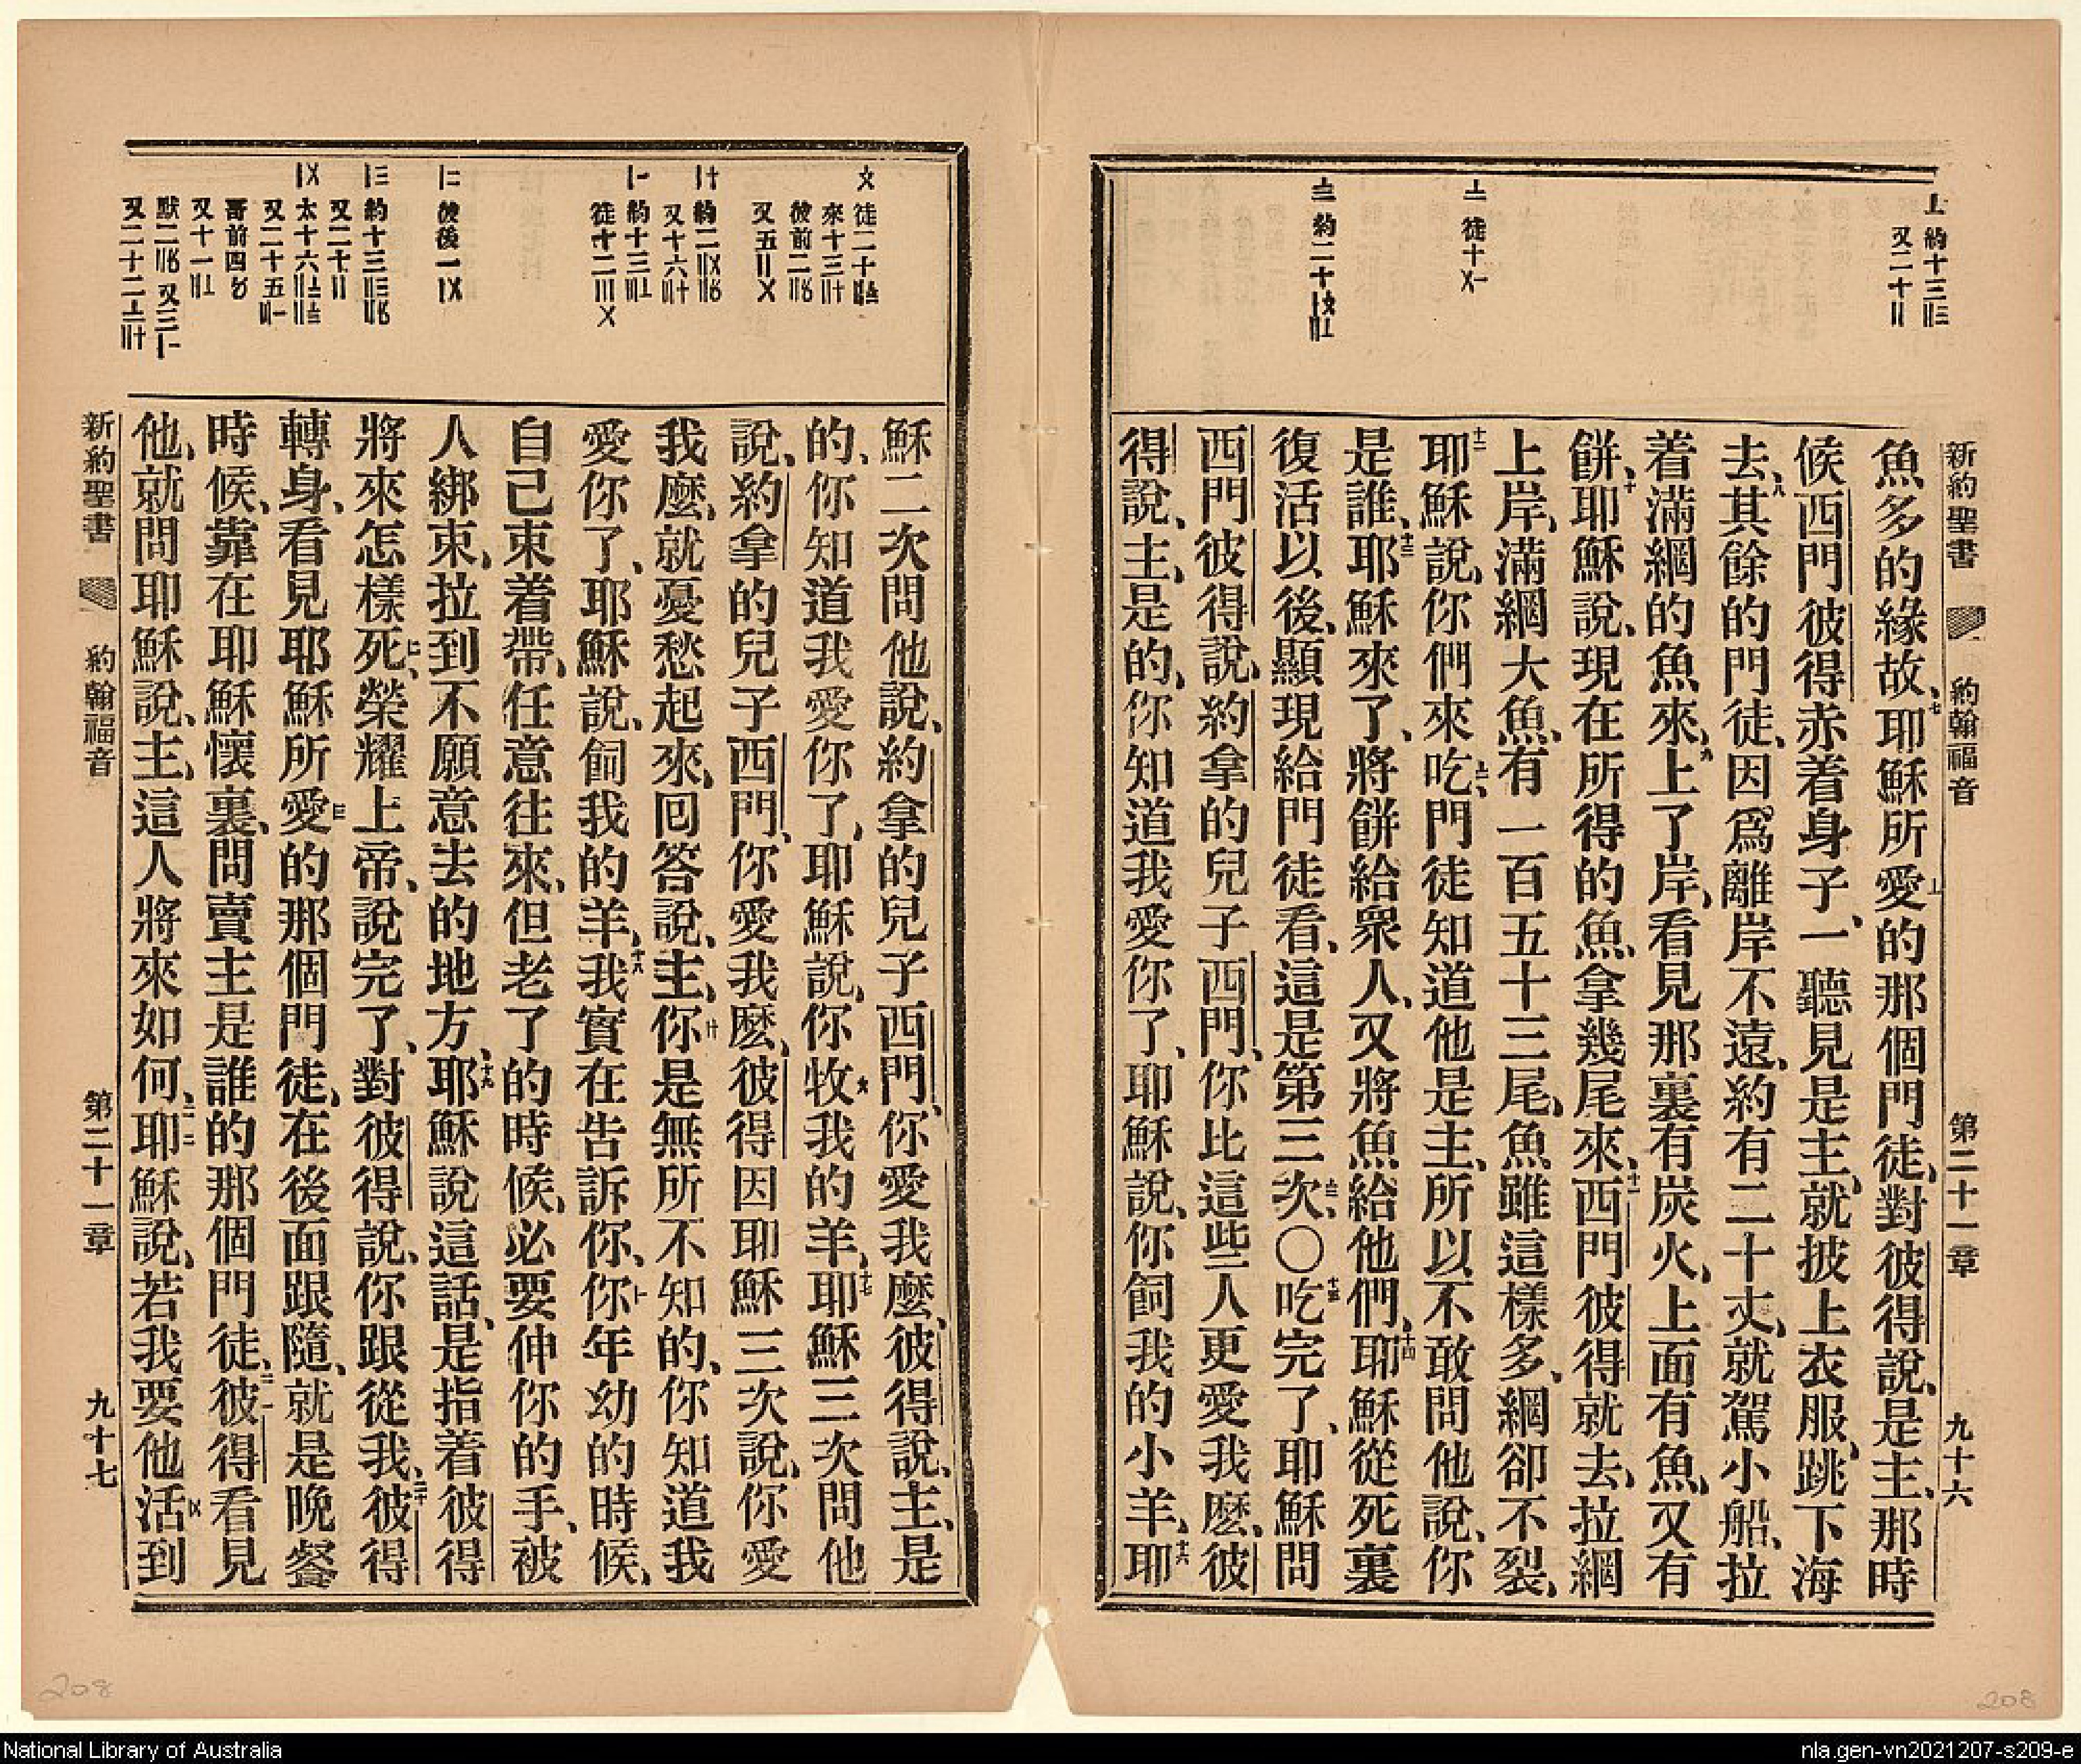 新約聖書 約翰福音 第二十一章 九十六
⊥ 約十三〢三
又二十〢
亠 徒十〤一
〨 約二十〡〩〢⊥
魚多的緣故、七耶穌所愛的那個門徒、對彼得說、是主、那時
候西門彼得赤着身子、一聽見是主、就披上衣服、跳下海
去、八其餘的門徒、因爲離岸不遠、約有二十丈、就駕小船、拉
着滿網的魚來、九上了岸、看見那裏有炭火、上面有魚、又有
餅、十耶穌說、現在所得的魚、拿幾尾來、十一西門彼得就去、拉網
上岸、滿網大魚、有一百五十三尾、魚雖這樣多、網卻不裂、
十二耶穌說、你們來吃、門徒知道他是主、所以不敢問他說、你
是誰、十三耶穌來了、將餅給眾人、又將魚給他們、十四耶穌從死裏
復活以後、顯現給門徒看、這是第三次、〇十五吃完了、耶穌問
西門彼得說、約拿的兒子西門、你比這些人更愛我麽、彼
得說、主、是的、你知道我愛你了、耶穌說、你飼我的小羊、十六耶
穌二次問他說、約拿的兒子西門、你愛我麽、彼得說、主、是
的、你知道我愛你了、耶穌說、你牧我的羊、十七耶穌三次問他
說、約拿的兒子西門、你愛我麽、彼得因耶穌三次說、你愛
我麽、就憂愁起來、回答說、主、你是無所不知的、你知道我
愛你了、耶穌說、飼我的羊、十八我實在告訴你、你年幼的時候、
自己束着帶、任意往來、但老了的時候、必要伸你的手、被
人綁束、拉到不願意去的地方、十九耶穌說這話、是指着彼得
將來怎樣死、榮耀上帝、說完了、對彼得說、你跟從我、二十彼得
轉身、看見耶穌所愛的那個門徒、在後面跟隨、就是晚餐
時候、靠在耶穌懷裏、問賣主是誰的那個門徒、二一彼得看見
他、就問耶穌說、主、這人將來如何、二二耶穌說、若我要他活到
新約聖書 約翰福音 第二十一章 九十七
208
208
National Library of Australia
nla.gen-vn2021207-s209-e